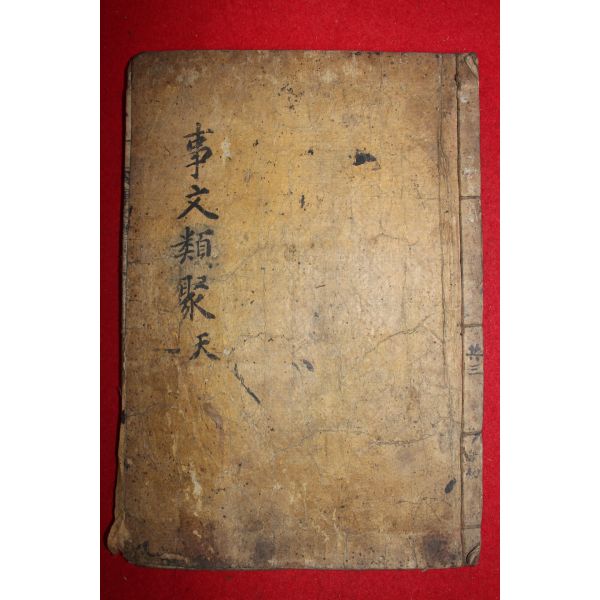 事文類聚 天
一
共三